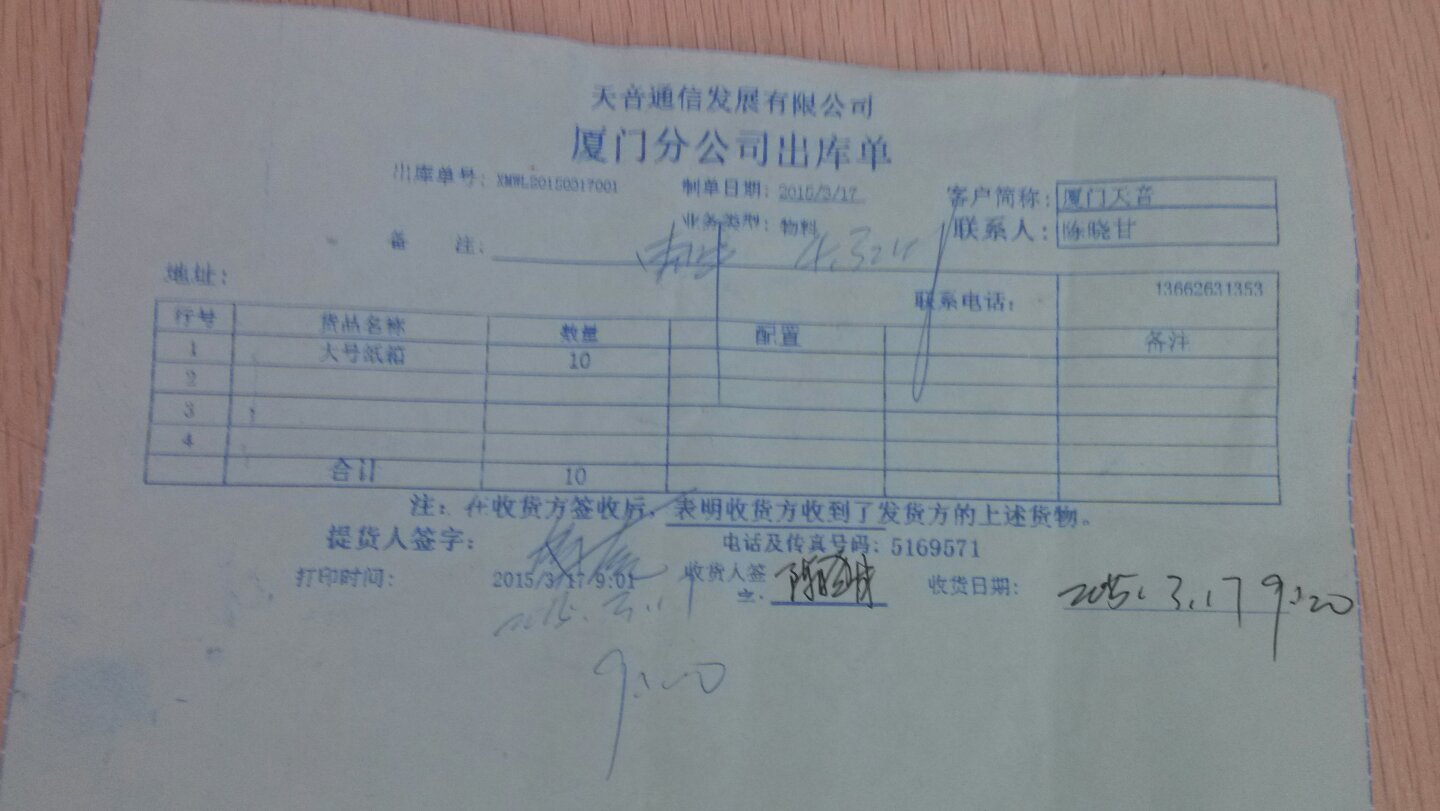 天音通信发展有限公司
厦门分公司出库单
出库单号：XMWL20150317001 制单日期：2015/3/17 客户简称：厦门天音
业务类型：物料 联系人：陈晓甘
备 注：
地址： 联系电话： 13662631353
行号 货品名称 数量 配置 备注
1 大号纸箱 10
2
3
4
合计 10
注：在收货方签收后，表明收货方收到了发货方的上述货物。
提货人签字： 电话及传真号码：5169571
打印时间： 2015/3/17 9:01 收货人签 陈晓甘 收货日期： 2015.3.17 9:20
2015.3.17
9:20